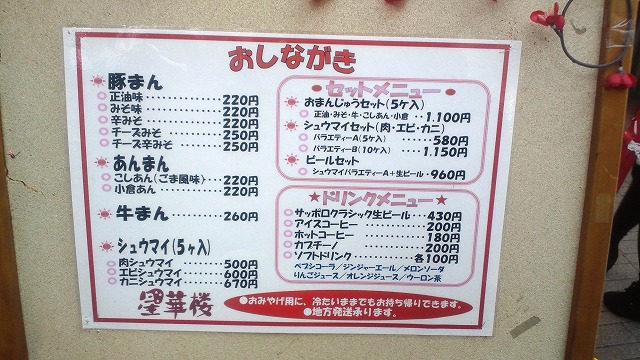 おしながき
豚まん
正油味 ‥‥‥‥‥‥ 220円
みそ味 ‥‥‥‥‥‥ 220円
辛みそ ‥‥‥‥‥‥ 220円
チーズみそ ‥‥‥‥ 250円
チーズ辛みそ ‥‥‥ 250円
あんまん
こしあん(ごま風味)‥‥ 220円
小倉あん ‥‥‥‥‥ 220円
牛まん ‥‥‥‥‥ 260円
シュウマイ(5ヶ入)
肉シュウマイ ‥‥‥ 500円
エビシュウマイ ‥‥ 600円
カニシュウマイ ‥‥ 670円
●セットメニュー●
おまんじゅうセット(5ケ入)
正油・みそ・牛・こしあん・小倉 ‥ 1,100円
シュウマイセット(肉・エビ・カニ)
バラエティーA(5ケ入) ‥‥‥ 580円
バラエティーB(10ケ入) ‥‥ 1,150円
ビールセット
シュウマイバラエティーA+生ビール‥960円
★ドリンクメニュー★
サッポロクラシック生ビール ‥ 430円
アイスコーヒー ‥‥‥‥‥ 200円
ホットコーヒー ‥‥‥‥‥ 180円
カプチーノ ‥‥‥‥‥‥ 200円
ソフトドリンク ‥‥‥‥ 各100円
ペプシコーラ/ジンジャーエール/メロンソーダ
りんごジュース/オレンジジュース/ウーロン茶
華楼
●おみやげ用に、冷たいままでもお持ち帰りできます。
●地方発送承ります。